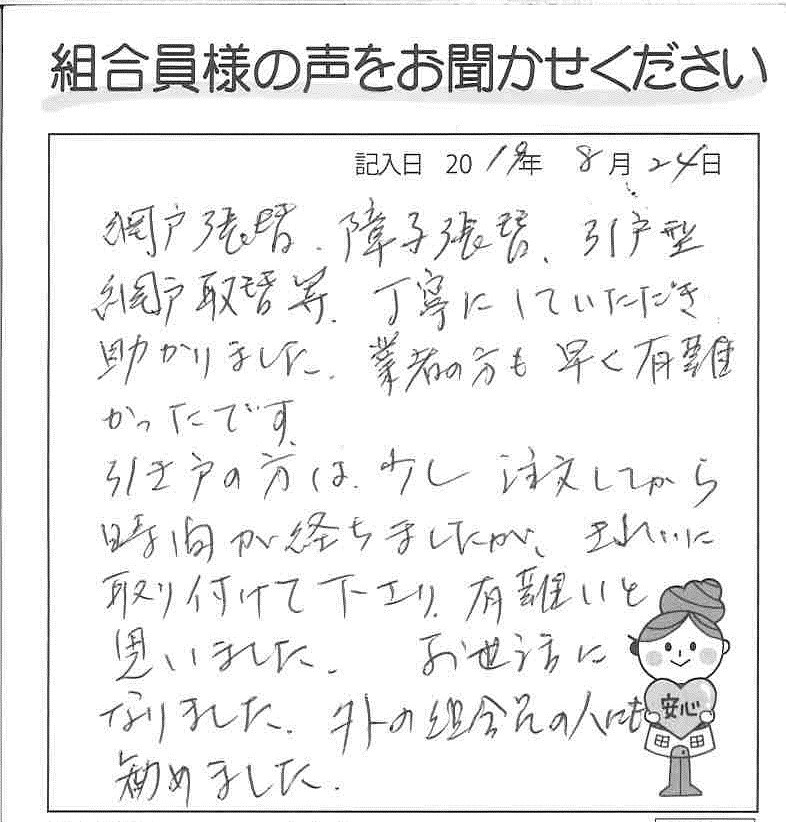 組合員様の声をお聞かせください
記入日 2019年 8月24日
網戸張替、障子張替、引戸型
網戸取替等、丁寧にしていただき
助かりました。業者の方も早く有難
かったです。
引き戸の方は、少し注文してから
時間が経ちましたが、きれいに
取り付けて下さり、有難いと
思いました。 お世話に
なりました。外の組合員の人にも
勧めました。
安心